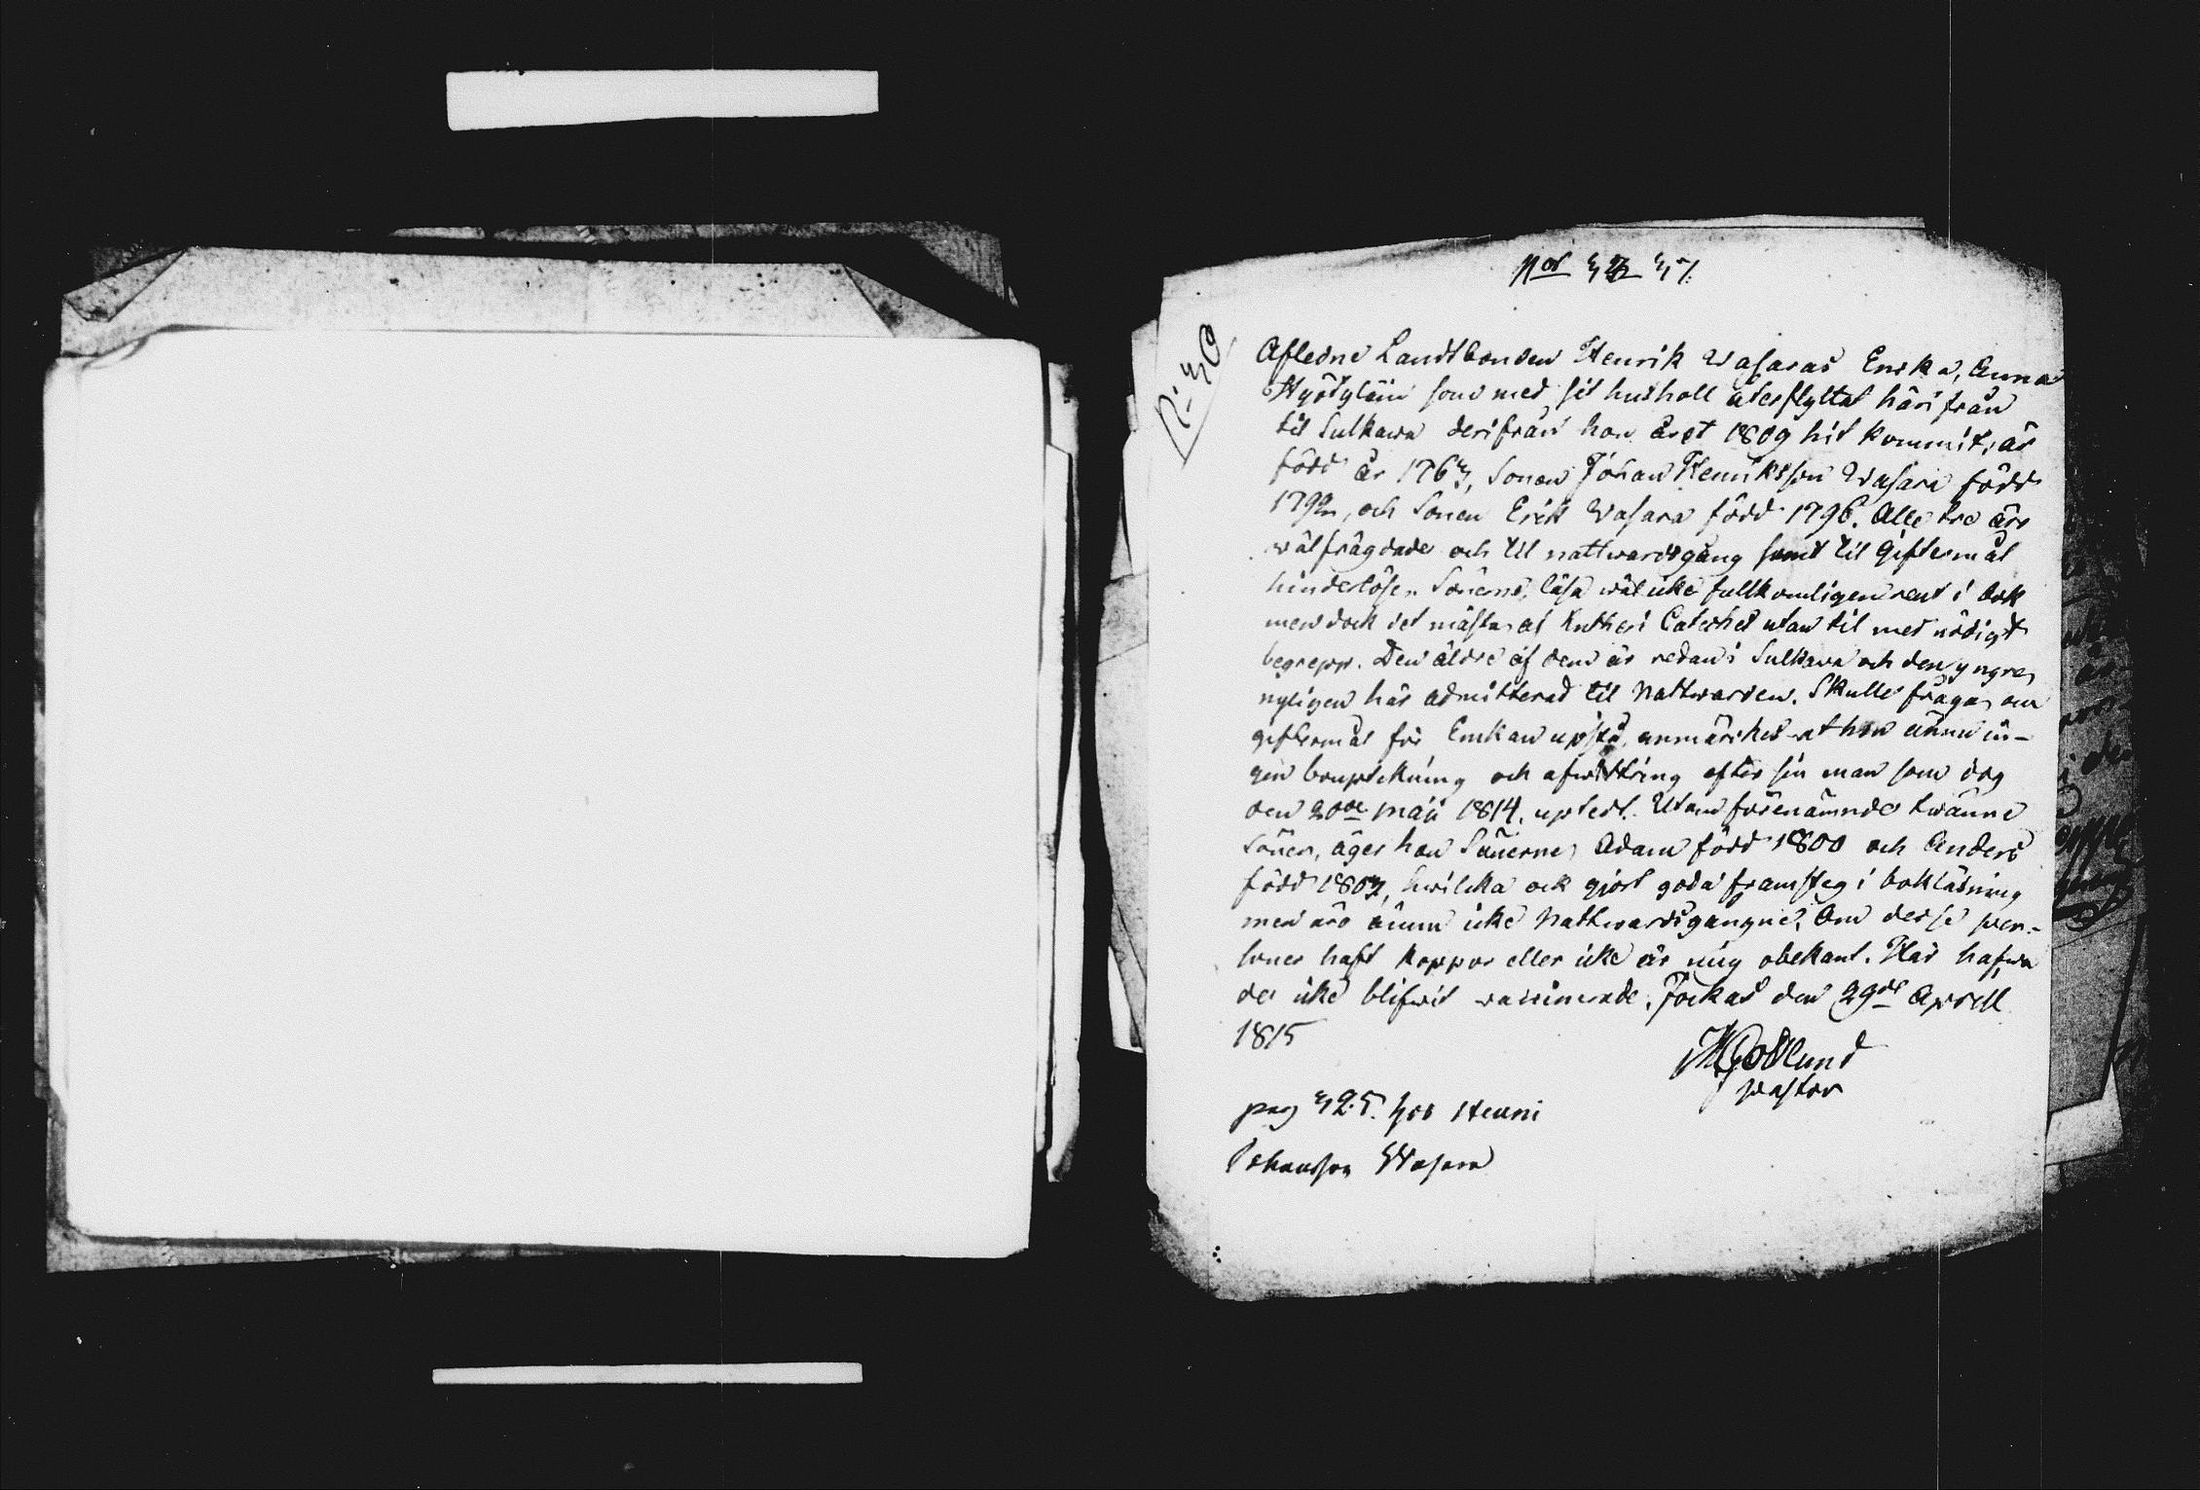 N:30
Afledne Landtbonden Henrik Wasaras Enka, Anna
Hyötyläin som med sit hushåll återflyttat härifrån
til Sulkava derifrån hon året 1809 hit kommit, är
född år 1763, Sonen Johan Henriksson Wasara född
1792, och Sonen Erik Wasara född 1796. Alle tre äro
wälfrägdade och til nattwardsgång samt til giftermål
hinderlöse. Sönerne, läsa wäl icke fullkomligen rent i bok
men dock det mästa af Lutheri Cateches utan til med nödigt
begrepp. Den äldre af dem är redan i Sulkava och den yngre
nyligen här admitterad til Nattwarden. Skulle fråga om
giftermål för Enkan upstå, anmärkes at hon ännu in-
gen bouptekning och afwittring efter sin man som dog
den 20de Maji 1814, uptedt. Utom förenämnde twänne
Söner, äger hon Sönerne Adam född 1800 och Anders
född 1803, hwilcka ock gjort goda framsteg i bokläsning
men äro ännu icke Nattwardsgångne. Om desse per-
soner haft koppor eller icke är mig obekant. Här hafwa
de icke blifwit vaccinerade. Jockas den 29de Aprill
1815
Gottlund
pastor
pag 325. hos Henric
Johansson Wasara